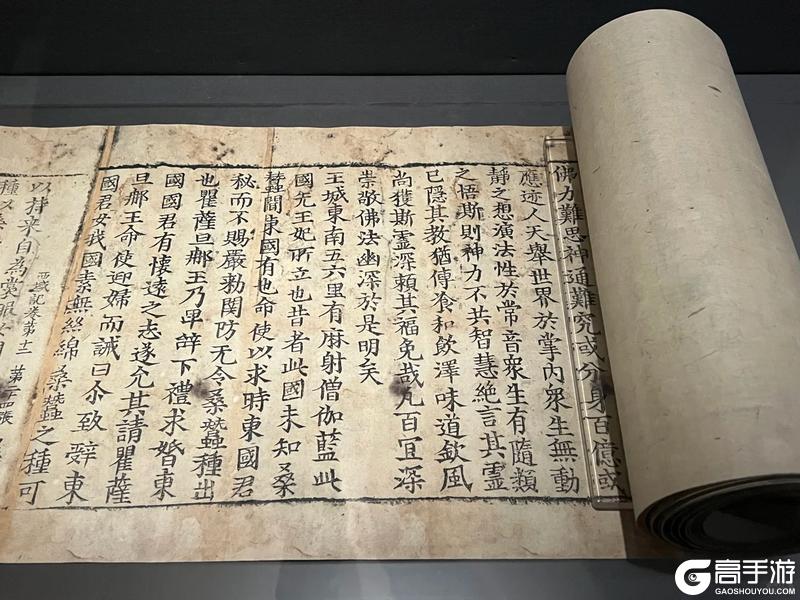 佛力難思神通難究或分身百億或
應迹人天舉世界於掌內衆生無動
靜之想演法性於常音衆生有隨類
之悟斯則神力不共智慧絕言其靈
已隱其教猶傳飡和飲澤味道欽風
尚獲斯靈深賴其福免哉凡百宜深
崇敬佛法幽深於是明矣
王城東南五六里有麻射僧伽藍此
國先王妃所立也昔者此國未知桑
蠶聞東國有也命使以求時東國君
秘而不賜嚴勑關防无令桑蠶種出
也瞿薩旦那王乃卑辝下禮求婚東
國國君有懷遠之志遂允其請瞿薩
旦那王命使迎婦而誡曰尒致辤東
國君女我國素無絲綿桑蠶之種可
西域記卷第十二 第張
以持来自為裳服
種
高手游
GAOSHOUYOU.COM